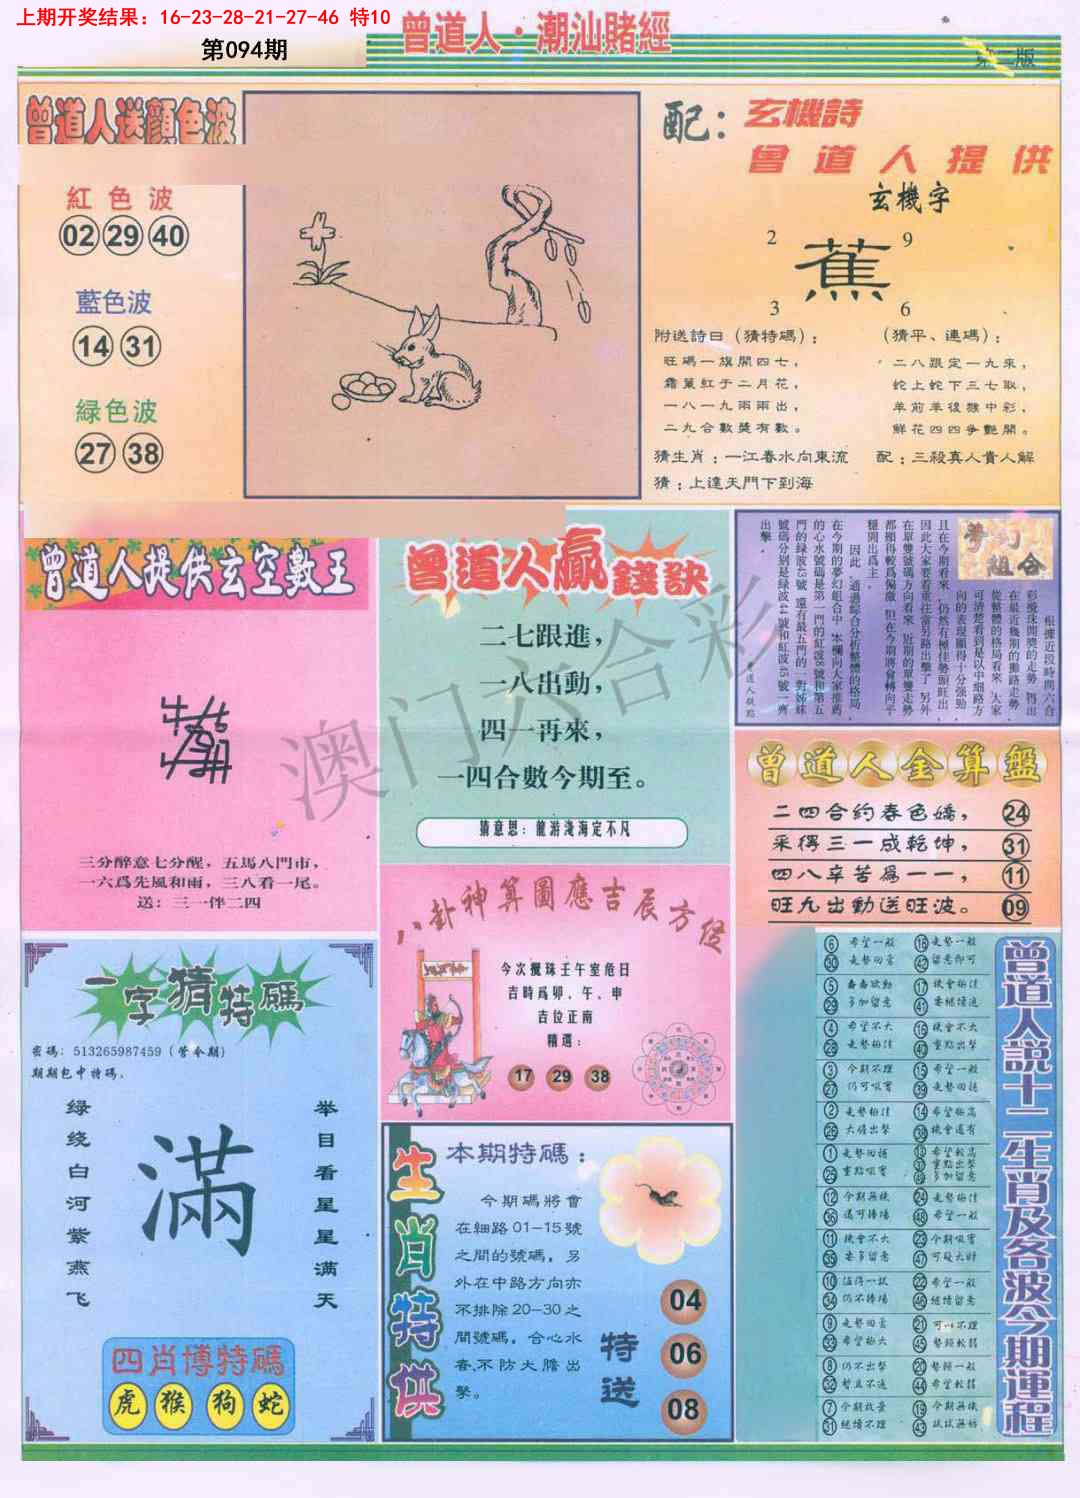 上期开奖结果：16-23-28-21-27-46 特10
第094期
曾道人·潮汕賭經
第二版
曾道人送顏色波
紅色波
02 29 40
藍色波
14 31
緑色波
27 38
配：玄機詩
曾道人提供
玄機字
2 9
蕉
3 6
附送詩曰（猜特碼）：
旺碼一旗開四七，
霜葉紅于二月花，
一八一九兩兩出，
二九合數獎有數。
（猜平、連碼）：
二八跟定一九來，
蛇上蛇下三七取，
羊前羊後猴中彩，
鮮花四四争艷開。
猜生肖：一江春水向東流
配：三殺真人貴人解
猜：上達天門下到海
曾道人提供玄空數王
三分醉意七分醒，五馬八門市，
一六爲先風和雨，三八看一尾。
送：三一伴二四
曾道人贏錢訣
二七跟進，
一八出動，
四一再來，
一四合數今期至。
猜意思：龍游淺海定不凡
夢幻組合
根據近段時間六合
彩攪珠開獎的走勢
在最近幾期的推路走勢
從整體的格局看來，大家
可清楚看到是以中細路方
向的表現顯得十分强勁，
且在今期看來，仍然有極佳勢頭旺出，
因此大家要着重注當另路出擊了，另外
在單雙號碼方向看來，近期的單雙走勢
都顯得較爲偏激，但在今期將會轉向平
穩開出爲主。
因此，通過綜合分析整體的格局，
在今期的夢幻組合中，本欄向大家推薦
出擊。
曾道人金算盤
二四合約春色嬌， 24
采得三一成乾坤， 31
四八辛苦爲一一， 11
旺九出動送旺波。 09
八卦神算圖應吉辰方位
今次攪珠壬午室危日
吉時爲卯、午、申
吉位正南
精選：
17 29 38
一字猜特碼
密碼：513265987459（管令期）
期期包中特碼。
绿绕白河紫燕飞
滿
举目看星星满天
四肖博特碼
虎 猴 狗 蛇
生肖特供
本期特碼：
今期碼將會
在細路01-15號
之間的號碼，另
外在中路方向亦
不排除20-30之
間號碼，合心水
者不防大膽出
擊。
特送
04
06
08
曾道人説十二生肖及各波今期運程
6 希望一般
30 走勢回落
18 走勢一般
42 留意即可
5 蠢蠢欲動
29 多加留意
17 機會極佳
41 要繼續追
4 希望不大
28 走勢極佳
16 機會不大
40 重點出擊
3 今期不理
27 仍可吸實
15 希望一般
39 走勢回穩
2 走勢極佳
26 大膽出擊
14 希望極高
38 機會還有
1 走勢回穩
25 重點吸實
13 希望較高
37 重點出擊
49 多加留意
12 今期無機
36 還可捧場
24 走勢極佳
48 希望一般
11 機會不大
35 要多留意
23 今期吸實
47 可疑大財
10 值得一試
34 仍不捧場
22 希望一般
46 繼續留意
9 走勢回落
33 希望極大
21 可以不理
45 勢頭較弱
8 仍不出擊
32 暫且不追
20 勢頭一般
44 希望較弱
7 今期放棄
31 繼續不理
19 今期無機
43 試試無妨
澳门六合彩